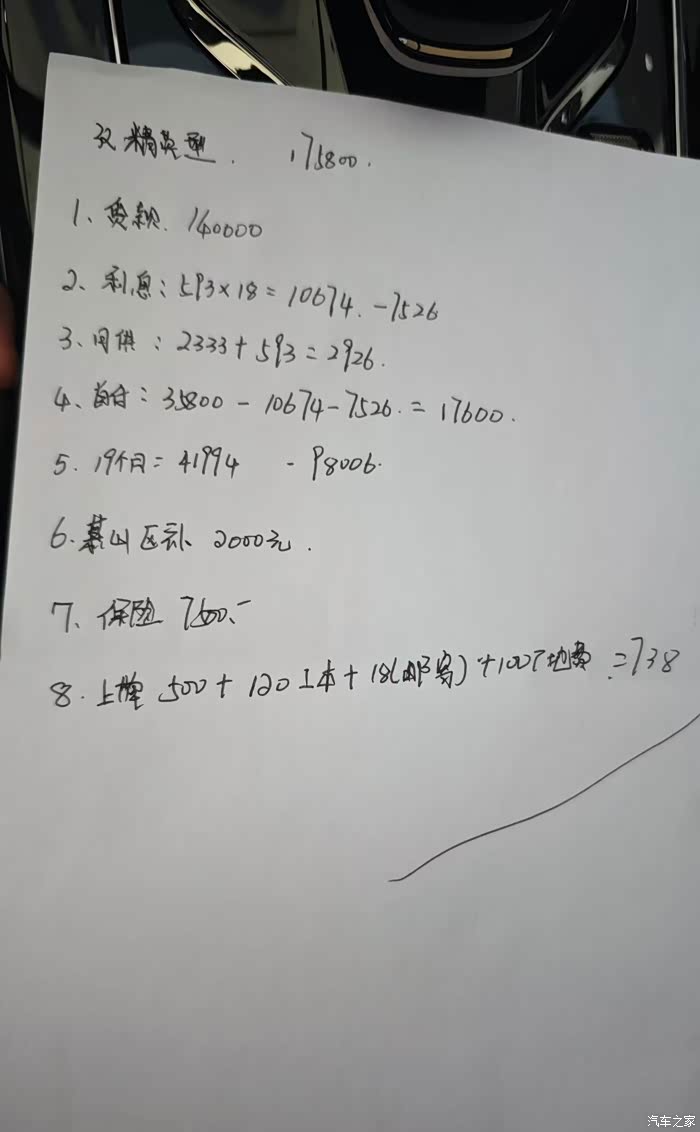 双精英型. 175800.
1、贷款. 140000
2、利息: 593×18=10674. -7526
3、月供: 2333+593=2926.
4、首付: 35800-10674-7526.=17600.
5. 19个月= 41994 - 98006.
6、山区补 2000元.
7、保险 7500.-
8. 上牌 500+120工本+18(邮寄)+100场地费.=738
汽车之家